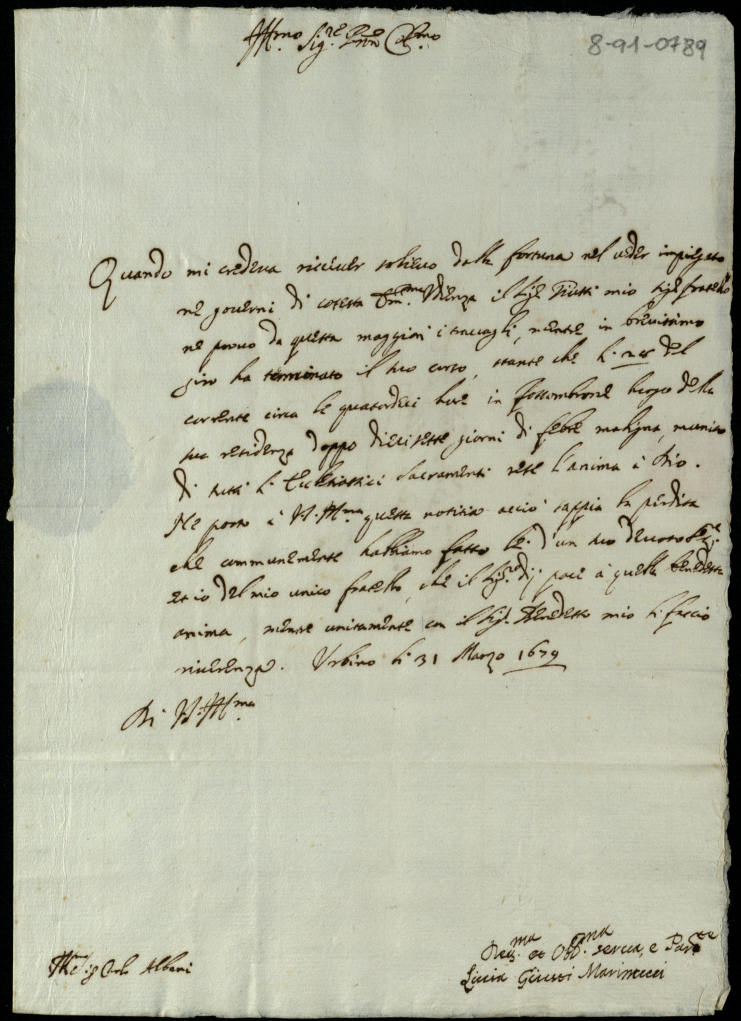 Ill.mo Sig.re P.ron Col.mo
8-91-0789
Quando mi credeva ricever sollievo dalla fortuna nel veder impiegato
ne governi di cotesta Em.ma il Sig.r Giusti mio Sig.r fratello
ne provo da questa maggiori i travagli, mentre in brevissimo
giro ha terminato il suo corso, stante che li 28 del
corrente circa le quatordici hore in Fossombrone luogo della
sua residenza doppo diecisette giorni di febre maligna, munito
di tutti li Ecclesiastici Sacramenti rese l'anima à Dio.
Ne porto à V.S. Ill.ma questa notitia acciò sappia la perdita
che communemente habbiamo fatto lei d'un suo devoto
et io del mio unico fratello, che il Sig.re dij pace à quella benedetta
anima, mentre unitamente con il Sig.r Benedetto mio li faccio
riverenza. Urbino li 31 Marzo 1679
Di V.S. Ill.ma
Sig Carlo Albani
Dev.ma et Obb.ma serva, e Par.te
Lucia Giusti Marinucci